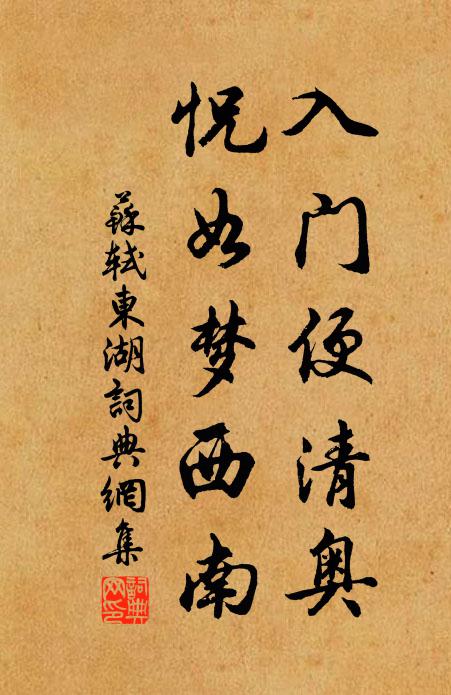 入门便清奥
怳如梦西南
蘇軾東湖詞典網集
詞典网印